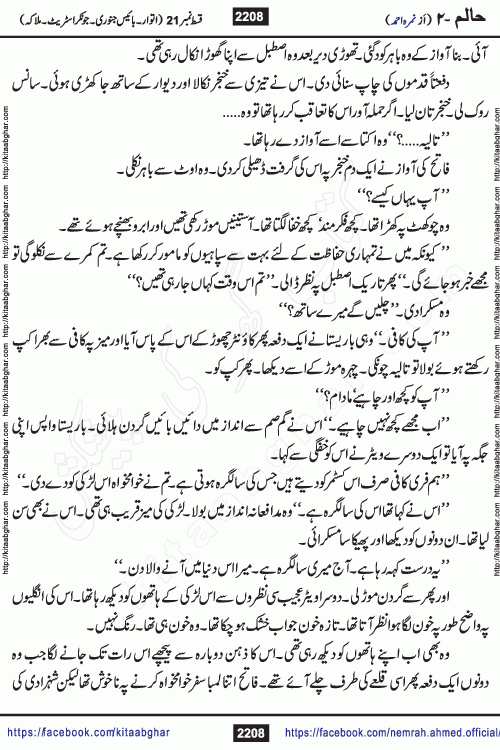 حالم ۔۲ (از نمرہ احمد)
2208
قسط نمبر 21 (اتوار۔ بائیس جنوری۔ جونکر اسٹریٹ۔ ملاکہ)
آئی۔ بنا آواز کے وہ باہر کود گئی۔ تھوڑی دیر بعد وہ اصطبل سے اپنا گھوڑا نکال رہی تھی۔
دفعتاً قدموں کی چاپ سنائی دی۔ اس نے تیزی سے خنجر نکالا اور دیوار کے ساتھ جا کھڑی ہوئی۔ سانس
روک لی۔ خنجر تان لیا۔ اگر حملہ آور اس کا تعاقب کر رہا تھا تو وہ.....
’’تالیہ.....؟‘‘ وہ اکتا سے اسے آواز دے رہا تھا۔
فاتح کی آواز نے ایک دم خنجر پہ اس کی گرفت ڈھیلی کر دی۔ وہ اوٹ سے باہر نکلی۔
’’آپ یہاں کیسے؟‘‘
وہ چوکھٹ پہ کھڑا تھا۔ کچھ فکرمند‘ کچھ خفا لگتا تھا۔ آستینیں موڑ رکھی تھیں اور ابرو بھنچے ہوئے تھے۔
’’کیونکہ میں نے تمہاری حفاظت کے لئے بہت سے سپاہیوں کو مامور کر رکھا ہے۔ تم کمرے سے نکلو گی تو
مجھے خبر ہو جائے گی۔‘‘ پھر تاریک اصطبل پہ نظر ڈالی۔ ’’تم اس وقت کہاں جا رہی تھیں؟‘‘
وہ مسکرا دی۔ ’’چلیں گے میرے ساتھ؟‘‘
’’آپ کی کافی۔‘‘ وہی باریستا نے ایک دفعہ پھر کاؤنٹر چھوڑ کے اس کے پاس آیا اور میز پہ کافی سے بھرا کپ
رکھتے ہوئے بولا تو تالیہ چونکی۔ چہرہ موڑ کے اسے دیکھا۔ پھر کپ کو۔
’’آپ کو کچھ اور چاہیے‘ مادام؟‘‘
’’اب مجھے کچھ نہیں چاہیے۔‘‘ اس نے گم صم سے انداز میں دائیں بائیں گردن ہلائی۔ باریستا واپس اپنی
جگہ پہ آیا تو ایک دوسرے ویٹر نے اس کو خفگی سے کہا۔
’’ہم فری کافی صرف اس کسٹمر کو دیتے ہیں جس کی سالگرہ ہوتی ہے۔ تم نے خوامخواہ اس لڑکی کو دے دی۔‘‘
’’اس نے کہا تھا اس کی سالگرہ ہے۔‘‘ وہ مدافعانہ انداز میں بولا۔ لڑکی کی میز قریب ہی تھی۔ اس نے بھی سن
لیا تھا۔ ان دونوں کو دیکھا اور پھیکا سا مسکرائی۔
’’یہ درست کہہ رہا ہے۔ آج میری سالگرہ ہے۔ میرا اس دنیا میں آنے والا دن۔‘‘
اور پھر سے گردن موڑ لی۔ دوسرا ویٹر عجیب سی نظروں سے اس لڑکی کے ہاتھوں کو دیکھ رہا تھا۔ اس کی انگلیوں
پہ واضح طور پہ خون لگا ہوا نظر آتا تھا۔ تازہ خون جو اب خشک ہو چکا تھا۔ وہ خون ہی تھا۔ رنگ نہیں۔
وہ بھی اب اپنے ہاتھوں کو دیکھ رہی تھی۔ اس کا ذہن دوبارہ سے پیچھے اس رات تک جانے لگا جب وہ
دونوں ایک دفعہ پھر اسی قلعے کی طرف چلے آئے تھے۔ فاتح اتنا لمبا سفر خوامخواہ کرنے پہ ناخوش تھا لیکن شہزادی کی
https://facebook.com/kitaabghar
2208
https://facebook.com/nemrah.ahmed.official/
http://kitaabghar.com http://kitaabghar.com http://kitaabghar.com http://kitaabghar.com http://kitaabghar.com
http://kitaabghar.com http://kitaabghar.com http://kitaabghar.com http://kitaabghar.com http://kitaabghar.com